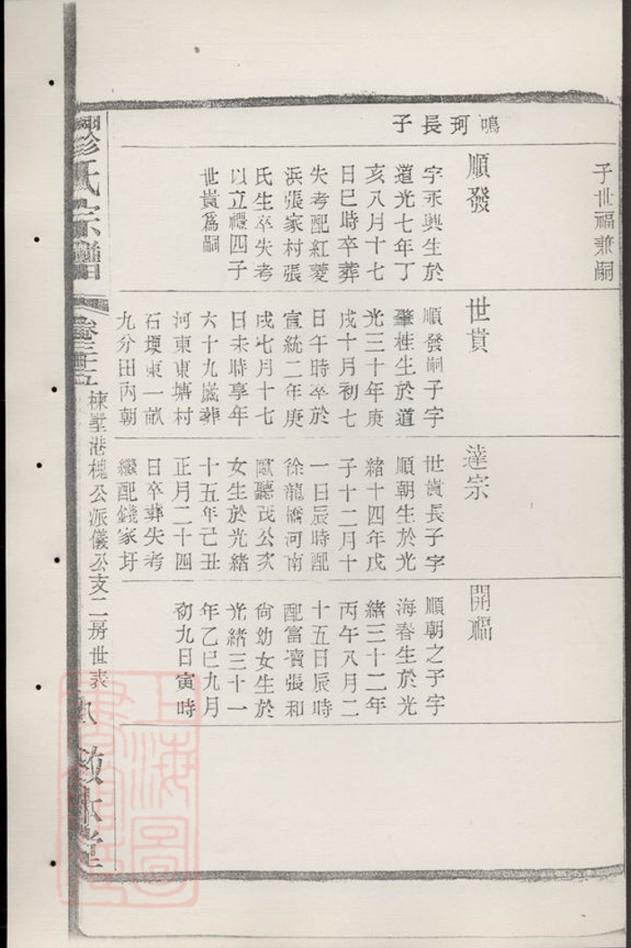 子世福兼嗣
鳴珂長子
順發
字永興生於
道光七年丁
亥八月十七
日巳時卒葬
失考配紅菱
浜張家村張
氏生卒失考
以立禮四子
世貴為嗣
世貴
順發嗣子字
肇桂生於道
光三十年庚
戌十月初七
日午時卒於
宣統二年庚
戌七月十七
日未時享年
六十九歲葬
河東東塘村
石堘東一畝
九分田丙朝
達宗
世貴長子字
順朝生於光
緒十四年戊
子十二月十
一日辰時配
徐龍橋河南
歐聽茂公次
女生於光緒
十五年己丑
正月二十四
日卒葬失考
繼配錢家圩
開福
順朝之子字
海春生於光
緒三十二年
丙午八月二
十五日辰時
配富瀆張和
尚幼女生於
光緒三十一
年乙巳九月
初九日寅時
氏宗譜
卷三十五
棟墅港槐公派儀公支二房世表
敦本堂
上海圖書館藏